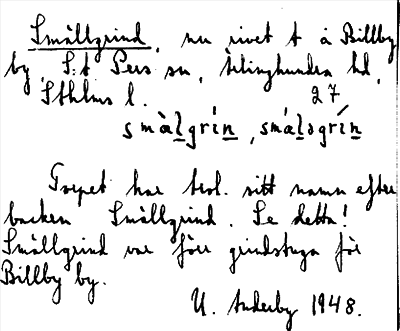 Smällgrind, nu rivet t å Billby
by, S:t Pers sn, Ärlinghundra hd,
Sthlms l.
27
smàlgrín, smáləgrín
Torpet har trol. sitt namn efter
backen Smällgrind. Se detta!
Smällgrind var förr grindstuga för
Billby by.
U. Anderby 1948.